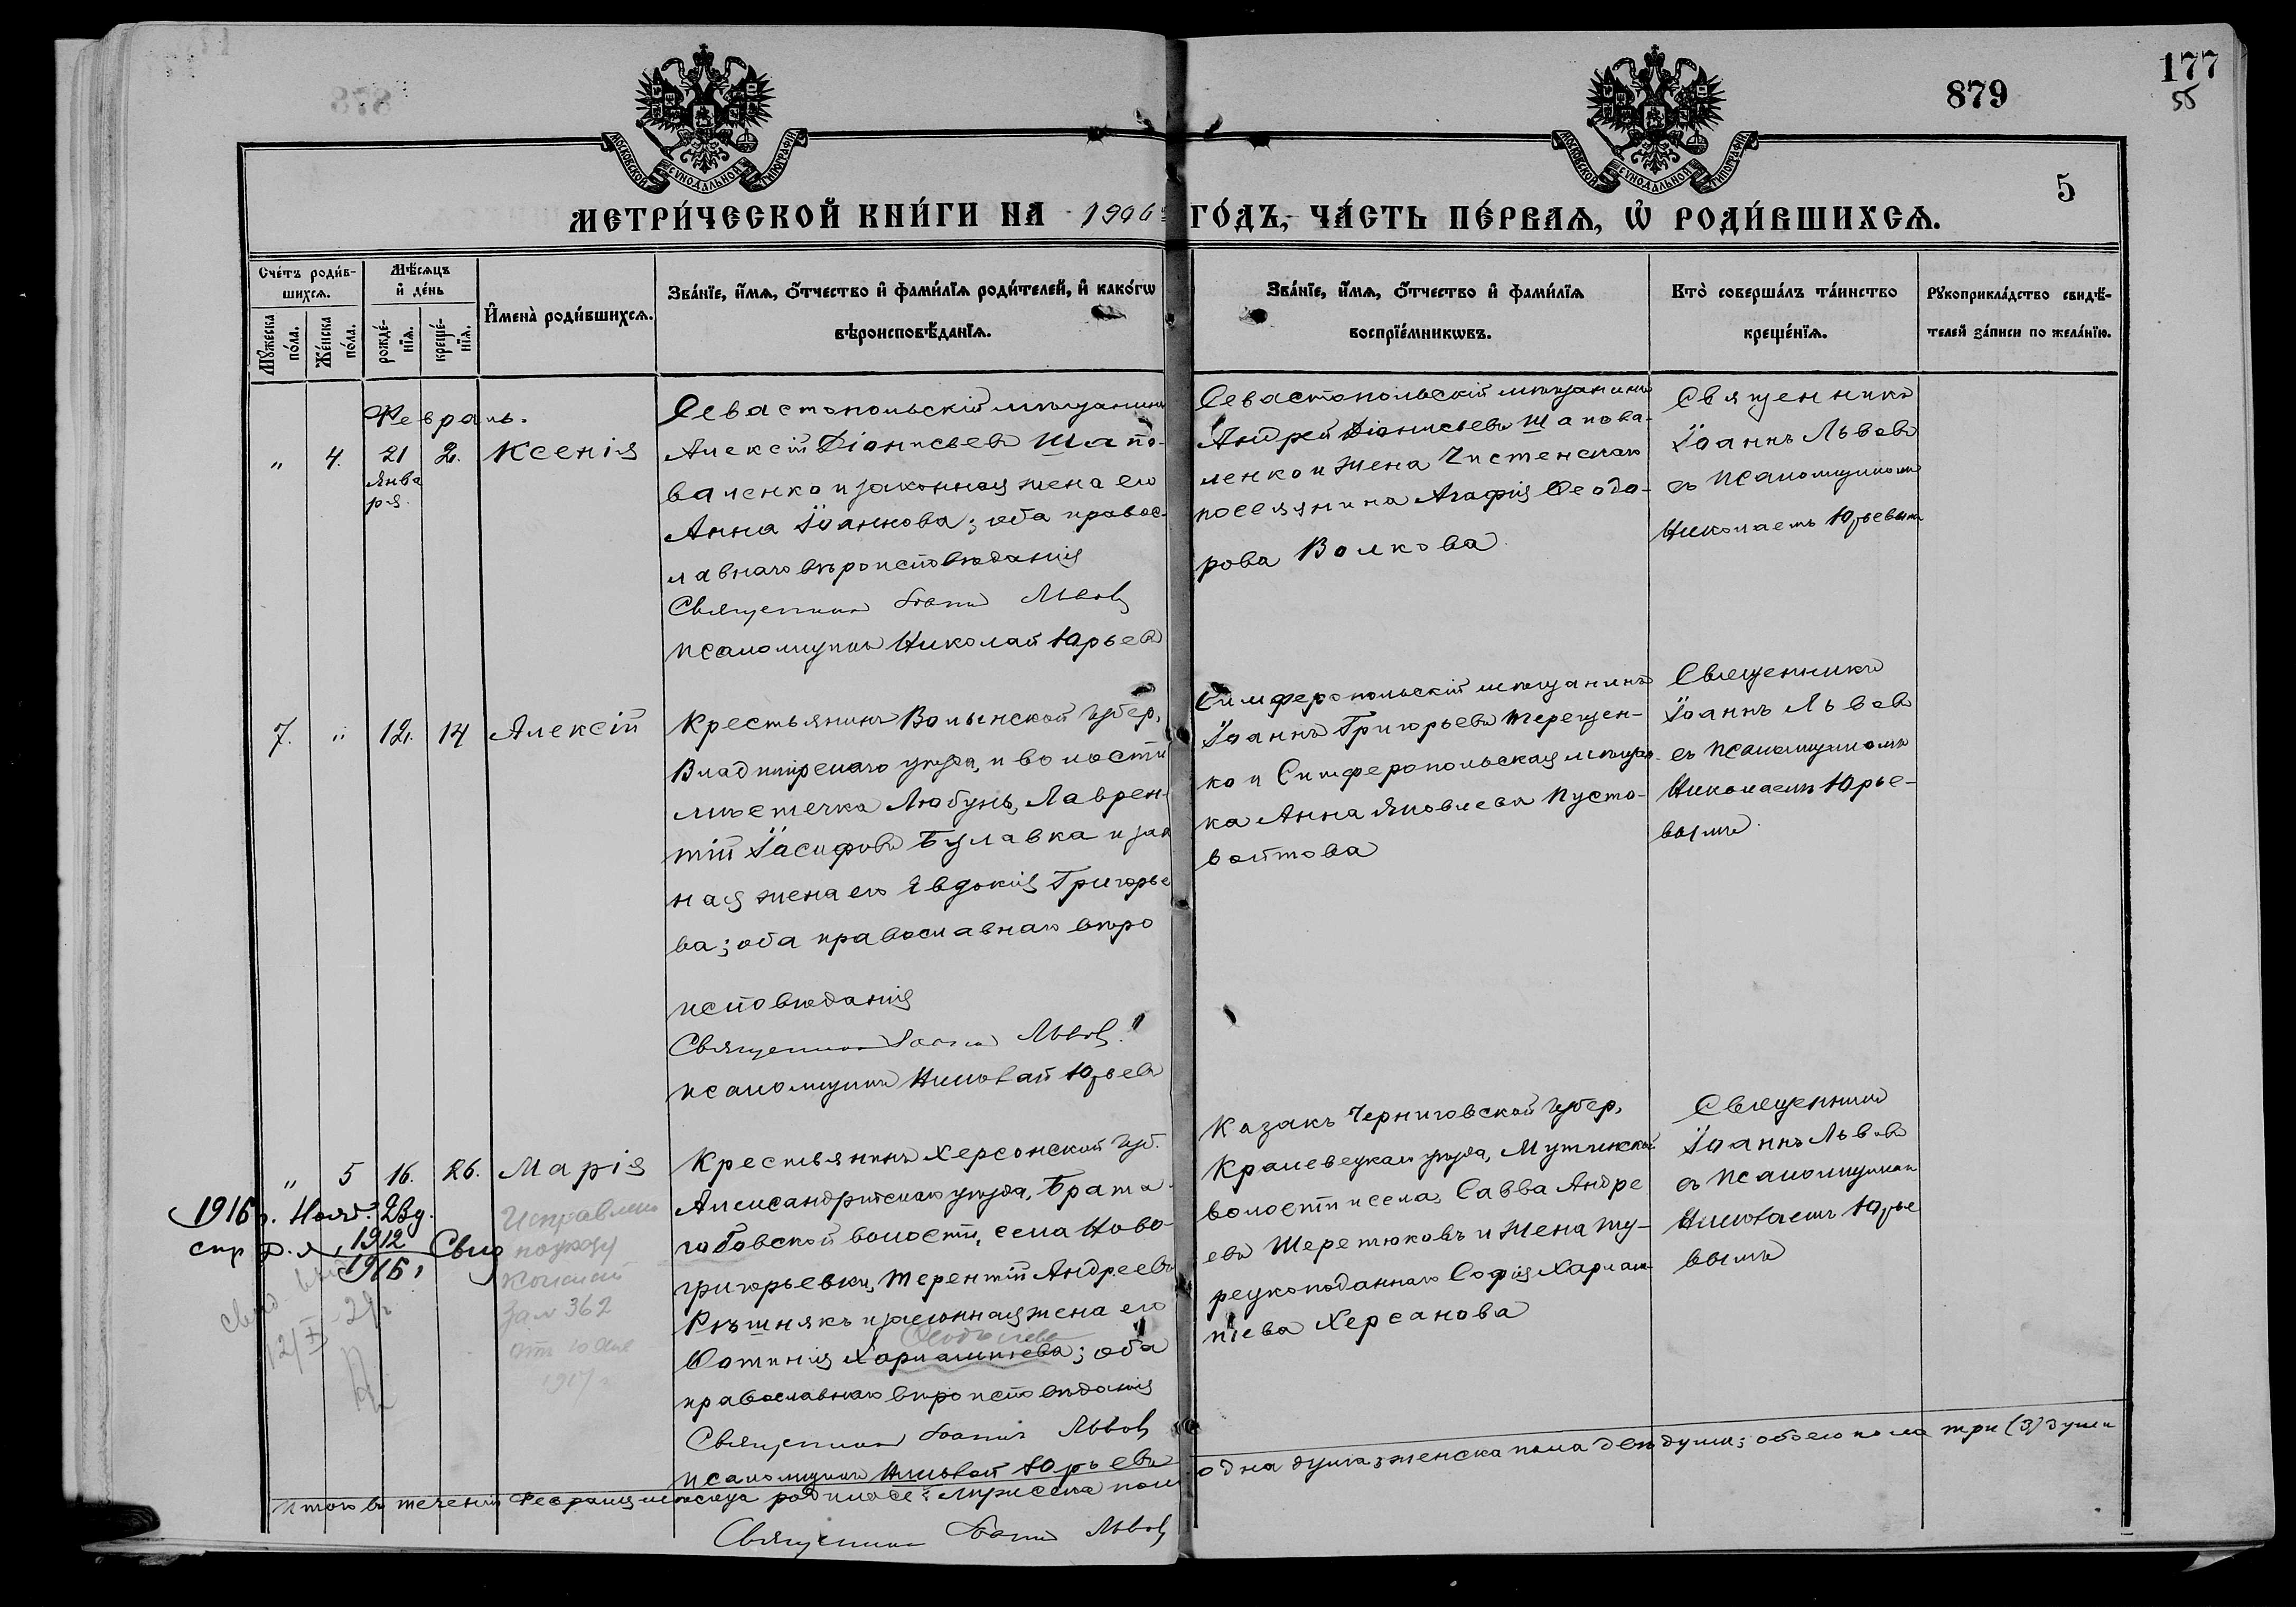 879
177
55
МОСКОВСКОЙ СѴНОДАЛЬНОЙ ТИПОГРАФІИ
МОСКОВСКОЙ СѴНОДАЛЬНОЙ ТИПОГРАФІИ
5
МЕТРИ́ЧЕСКОЙ КНИ́ГИ НА 1906 ГО́ДЪ, ЧА́СТЬ ПЕ́РВАѦ, Ѡ РОДИ́ВШИХСѦ.
Сче́тъ роди́в-
шихсѧ.
Мꙋ́жеска по́ла.
Же́нска по́ла.
Мѣ́сѧцъ
и҆ де́нь
рожде́-
нїѧ.
креще́-
нїѧ.
И҆мена̀ роди́вшихсѧ.
Зва́нїе, и҆́мѧ, о҆́тчество и҆ фами́лїѧ роди́телей, и҆ како́гѡ
вѣроисповѣ́данїѧ.
Зва́нїе, и҆́мѧ, о҆́тчество и҆ фами́лїѧ
воспрїе́мникѡвъ.
Кто̀ соверша́лъ та́инство
креще́нїѧ.
Рꙋкоприкла́дство свидѣ́-
телей за́писи по жела́нїю.
Февраль.
" 4. 21 2. Ксенія
Янва
ря
Севастопольскій мѣщанинъ
Алексѣй Діонисьевъ Шапо-
валенко и законная жена его
Анна Іоаннова; оба правос-
лавнаго вѣроисповѣданія
Священникъ Іоаннъ Львовъ
псаломщикъ Николай Юрьевъ
Севастопольскій мѣщанинъ
Андрей Діонисьевъ Шапова-
ленко и жена Чистенскаго
поселянина Агафія Ѳеодо-
рова Волкова
Священникъ
Іоаннъ Львовъ
съ псаломщикомъ
Николаемъ Юрьевымъ
7. " 12. 14 Алексій
Крестьянинъ Волынской губер.
Владимірскаго уѣзда, и волости
мѣстечка Любунь, Лаврен-
тій Іосифовъ Булавка и зак
ная жена его Евдокія Григорье
ва; оба православнаго вѣро
исповѣданія
Священникъ Іоаннъ Львовъ
псаломщикъ Николай Юрьевъ
Симферопольскій мѣщанинъ
Іоаннъ Григорьевъ Терещен-
ко и Симферопольская мѣщан-
ка Анна Яковлева Пусто-
войтова
Священникъ
Іоаннъ Львовъ
съ псаломщикомъ
Николаемъ Юрье-
вымъ.
" 5 16. 26. Марія
Крестьянинъ Херсонской губ.
Александрійскаго уѣзда, Брато
любовской волости, села Ново-
григорьевки, Терентій Андреевъ
Рѣшнякъ и законная жена его
Фотинія Харлампіева; оба
православнаго вѣроисповѣданія
Священникъ Іоаннъ Львовъ
псаломщикъ Николай Юрьевъ
Казакъ Черниговской губер.
Кролевецкаго уѣзда, Мутинской
волости и села, Савва Андре
евъ Шеретюковъ и жена ту-
рецкоподаннаго Софія Харлам-
піева Херсанова
Священникъ
Іоаннъ Львовъ
съ псаломщикомъ
Николаемъ Юрье
вымъ
1916 г. Нояб. 23 д.
1912
1916
Исправлено
по указу
Зал 362
1917 г.
Итого въ теченіи Февраля мѣсяца родилось: мужеска пола одна душа; женска пола двѣ души; обоего пола три (3) души
Священникъ Іоаннъ Львовъ